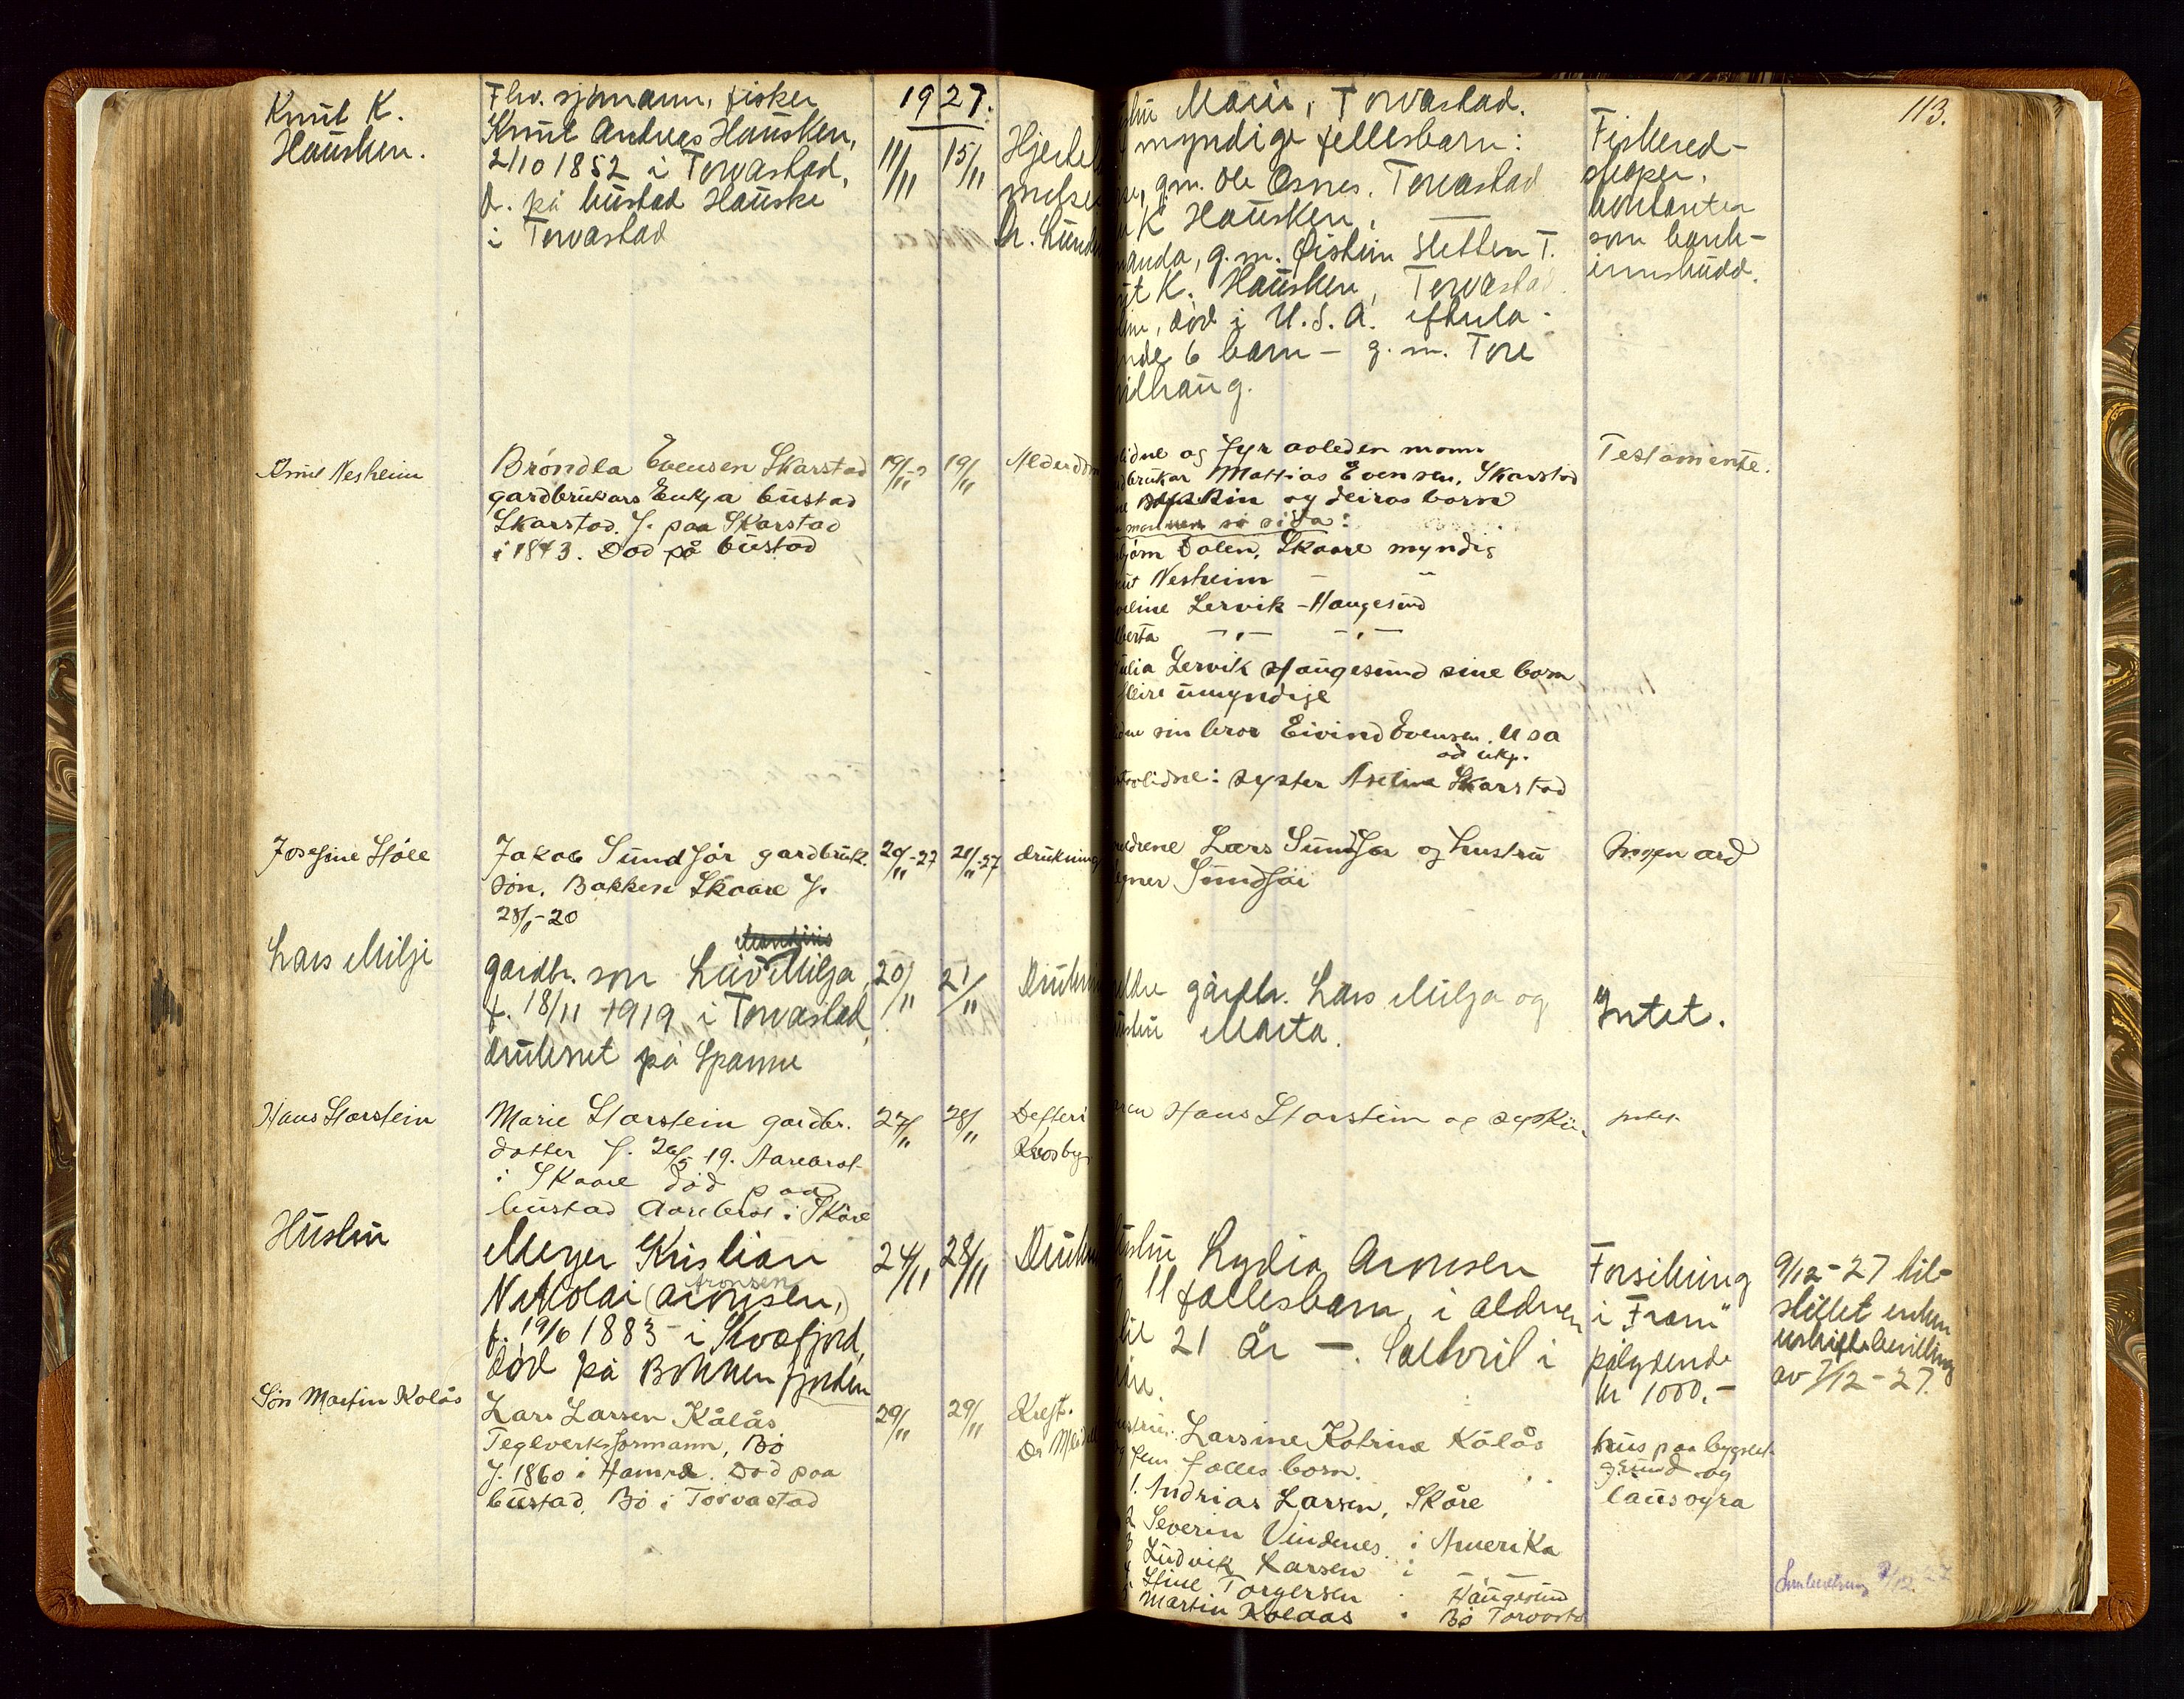 113.
1927.
Knut K.
Hausken.
Fhv. sjømann, fisker
Knut Andreas Hausken,
2/10 1852 i Torvastad,
d. på bustad Hauske
i Torvastad
11/11
15/11
Marie, Torvastad.
myndige fellesbarn:
g.m. Ole Osnes. Torvastad
K Hausken,
g.m. Øistein Sletten T.
K. Hausken, Torvastad
død i U.S.A. efterla-
6 barn - g.m. Tore
Fiskered-
skaper,
kontanter
som bank-
innskudd.
Knut Nesheim
Brøndla Evensen Skarstad
gardbrukars Enkja bustad
Skarstad. f. paa Skarstad
i 1843. Død på bustad
19/11
19/11
og fyr avleden mann
Mattias Evensen, Skarstad
og deiras born
Dalen, Skaare myndig
Nesheim
Lervik - Haugesund
Lervik Haugesund sine born
umyndige
sin bror Eivind Evensen. Usa
syster Aseline Skarstad
Testamente.
Josefine Støle
Jakob Sundfør gardbruk.
søn. Bakken Skaare f.
28/-20
20/11-27
21/11-27
drukning
Lars Sundfør og hustru
Sundfør
Ingen ard
Lars Milje
gardbr. søn Liiv Milja
f. 18/11 1919 i Torvastad,
druknet på Spanne
20/11
21/11
gårdbr. Lars Milja og
Marta.
Intet.
Hans Storstein
Marie Storstein gardbr.
dotter f. 26/5 19. Aarebrot
i Skaare død paa
bustad Aarebrot i Skåre
27/11
28/11
Defteri
Hans Storstein og syskin
Intet
Hustru
Meyer Kristian
Nikolai (Aronsen,)
Aronsen
f. 19/6 1883 i Kvæfjord,
død på Bokkenfjorden
24/11
28/11
Lydia Aronsen
11 fællesbarn, i alderen
21 år -.
Forsikring
i "Fram"
pålydende
kr 1000.-
9/12-27 til-
stillet enken
uskiftebevilling
av 7/12-27.
Søn Martin Kolås
Lars Larsen Kålås
Teglverksformann, Bø
f. 1860 i Hamre. Død paa
bustad, Bø i Torvastad
29/11
29/11
Kreft.
Larsine Katrine Kålås
fem falles born.
1. Andrias Larsen, Skåre
2 Severin Vindenes i Amerika
3 Ludvik Larsen i
Stine Torgersen Haugesund
Martin Kolaas Bø Torvasta
hus paa bygslet
grund og
lausøyra